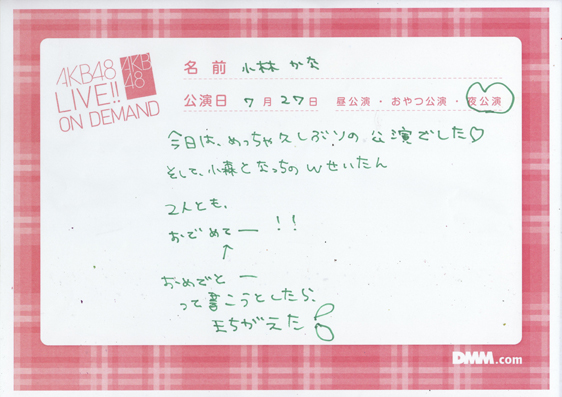 AKB48
LIVE!!
ON DEMAND
AKB
48
名前 小林 かな
公演日 7月27日 昼公演・おやつ公演・夜公演
今日は、めっちゃ久しぶりの公演でした♡
そして、小森となっちのWせいたん
2人とも、
おでめてー!!
↑
おめでとー
って書こうとしたら、
まちがえた
DMM.com